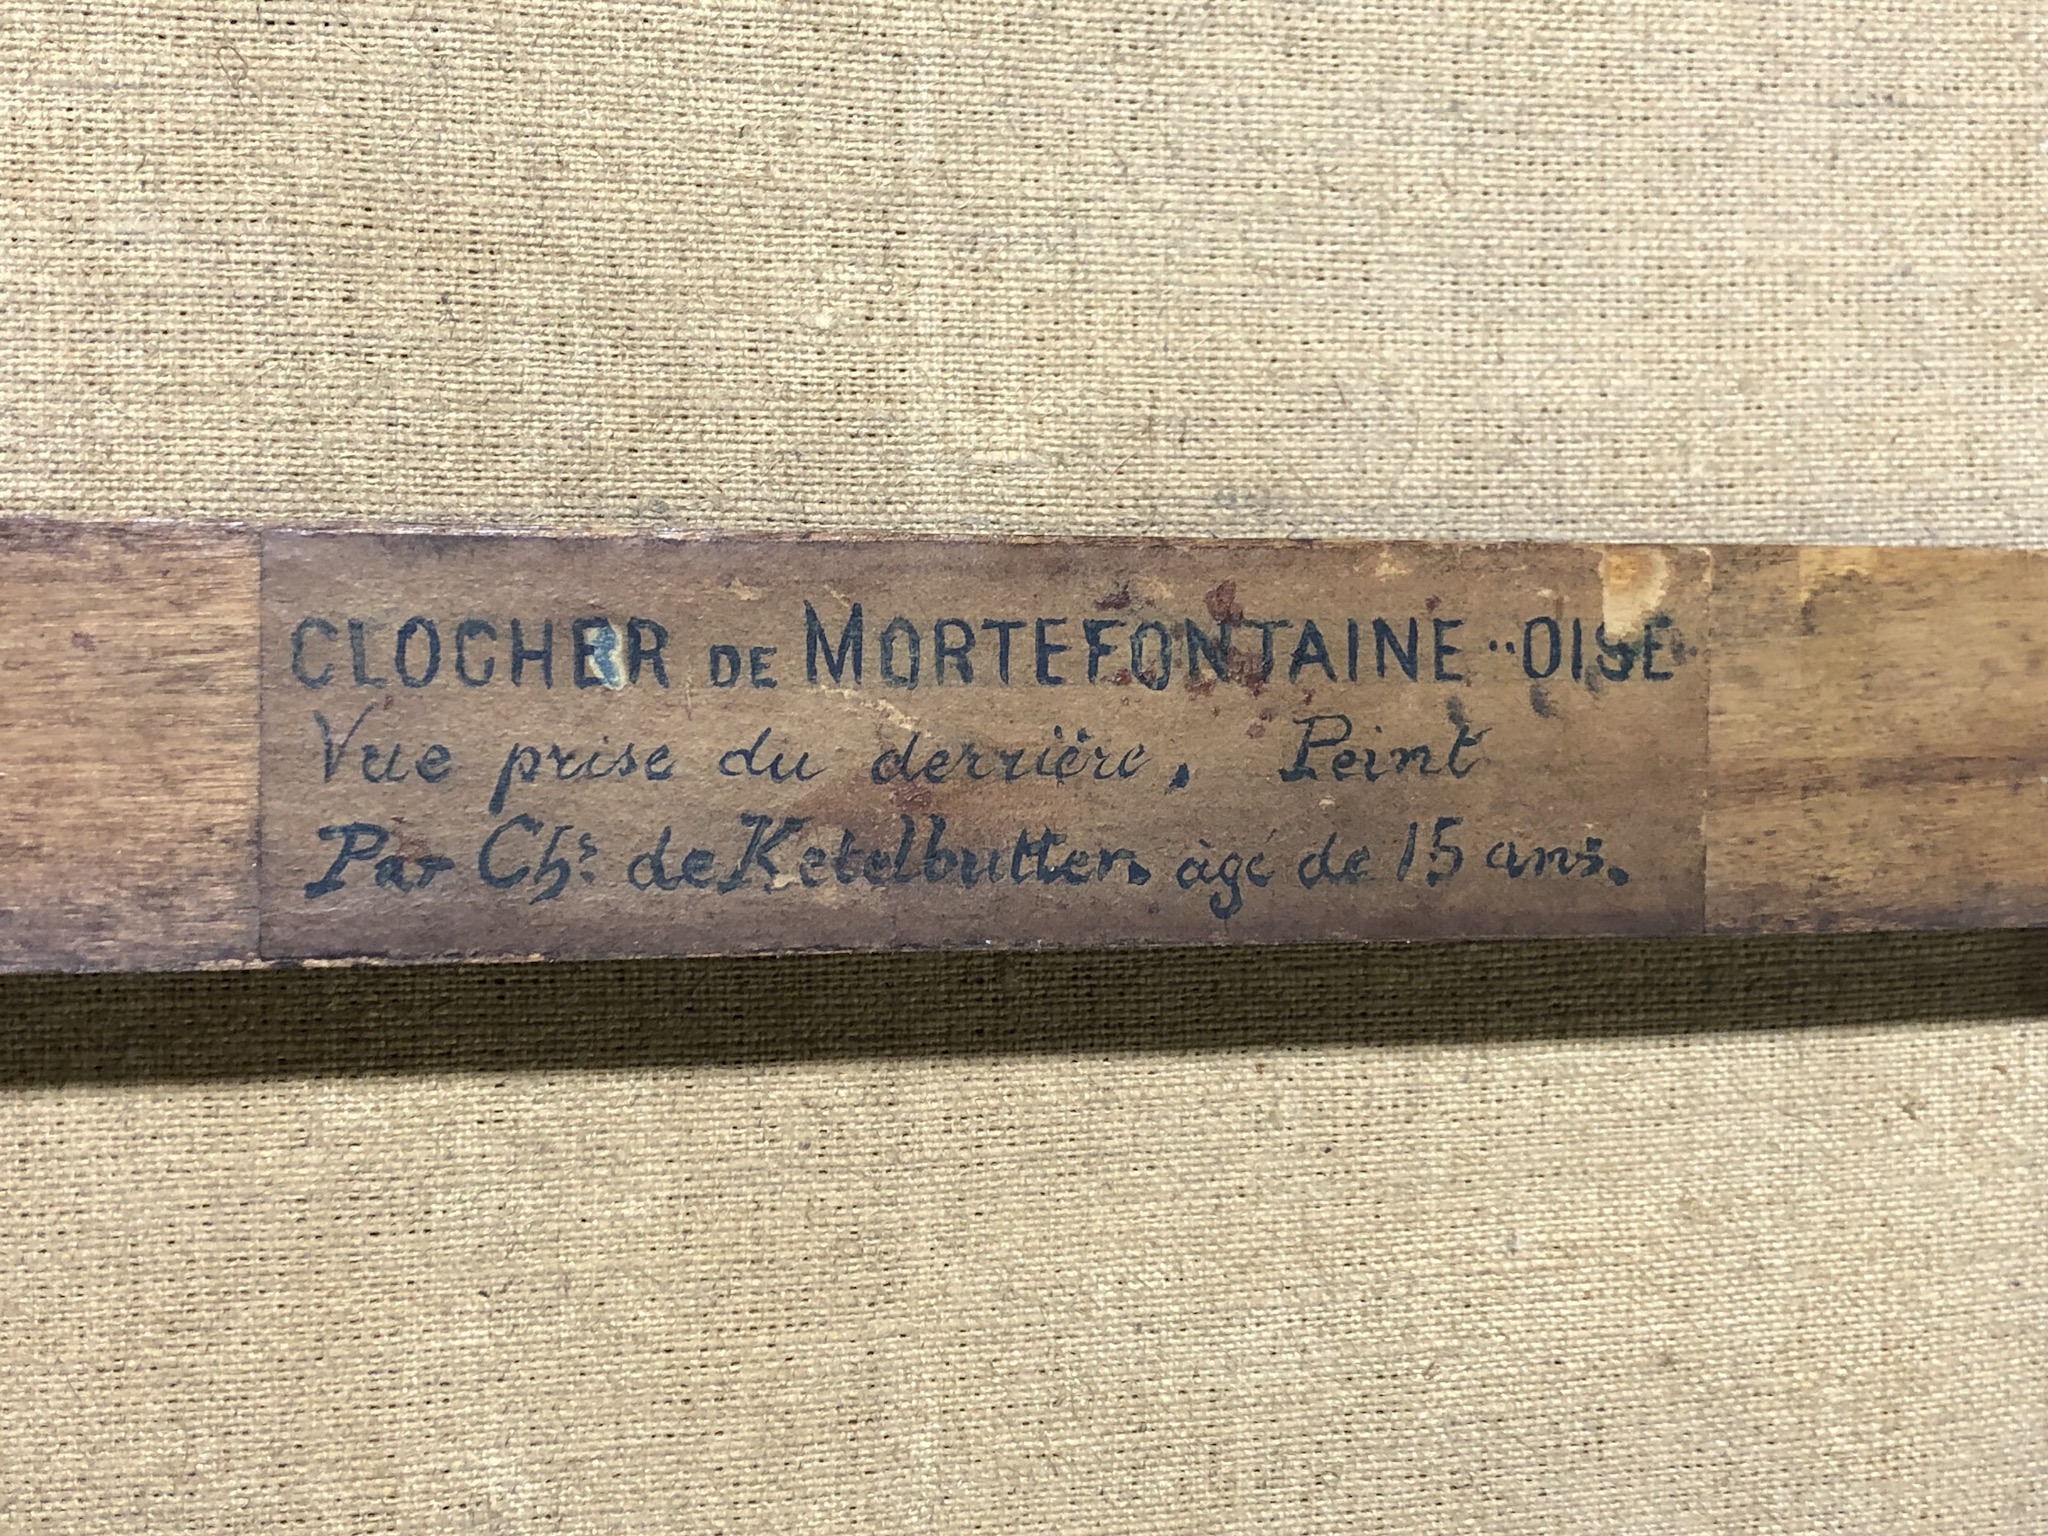 CLOCHER DE MORTEFONTAINE ·· OISE
Vue prise du derrière, Peint
Par Chs de Ketelbutter âgé de 15 ans.